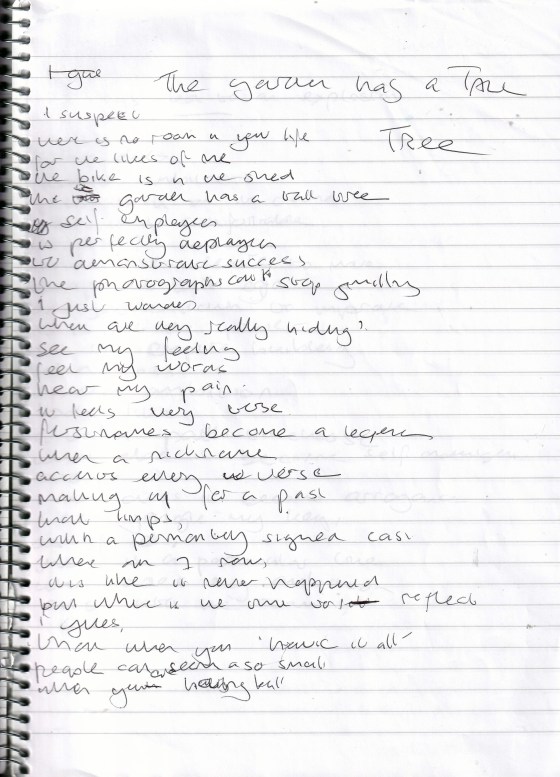 The garden has a TALL
TREE
I suspect
there is no room in your life
for the likes of me
the bike is in the shed
the garden has a tall tree
self employed
is perfectly deployed
to demonstrate success
the photographs can't stop smiling
I just wonder
what are they really hiding?
see my feeling
feel my words
hear my pain.
it feels very terse
first names become a
when a nickname
across every verse
making up for a past
that limps,
with a personally signed cast
where am I now,
it's like it never happened
but where is the time to reflect
I guess,
that when you 'have it all'
people can seem so small
when your having ball